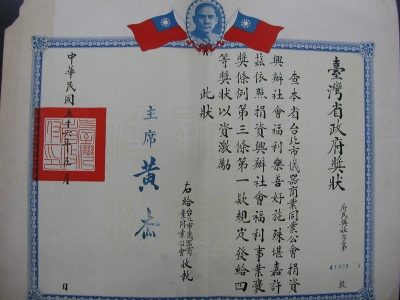 臺灣省政府獎狀
府民興社字第
號
查本省台北市儀器商業同業公會捐資
興辦社會福利樂善好施殊堪嘉許
茲依照捐資興辦社會福利事業獎
獎條例第三條第一款規定發給四
等獎狀以資激勵
此狀
右給台北市儀器商業同業公會收執
主席黃杰
中華民國五十六年五月 日